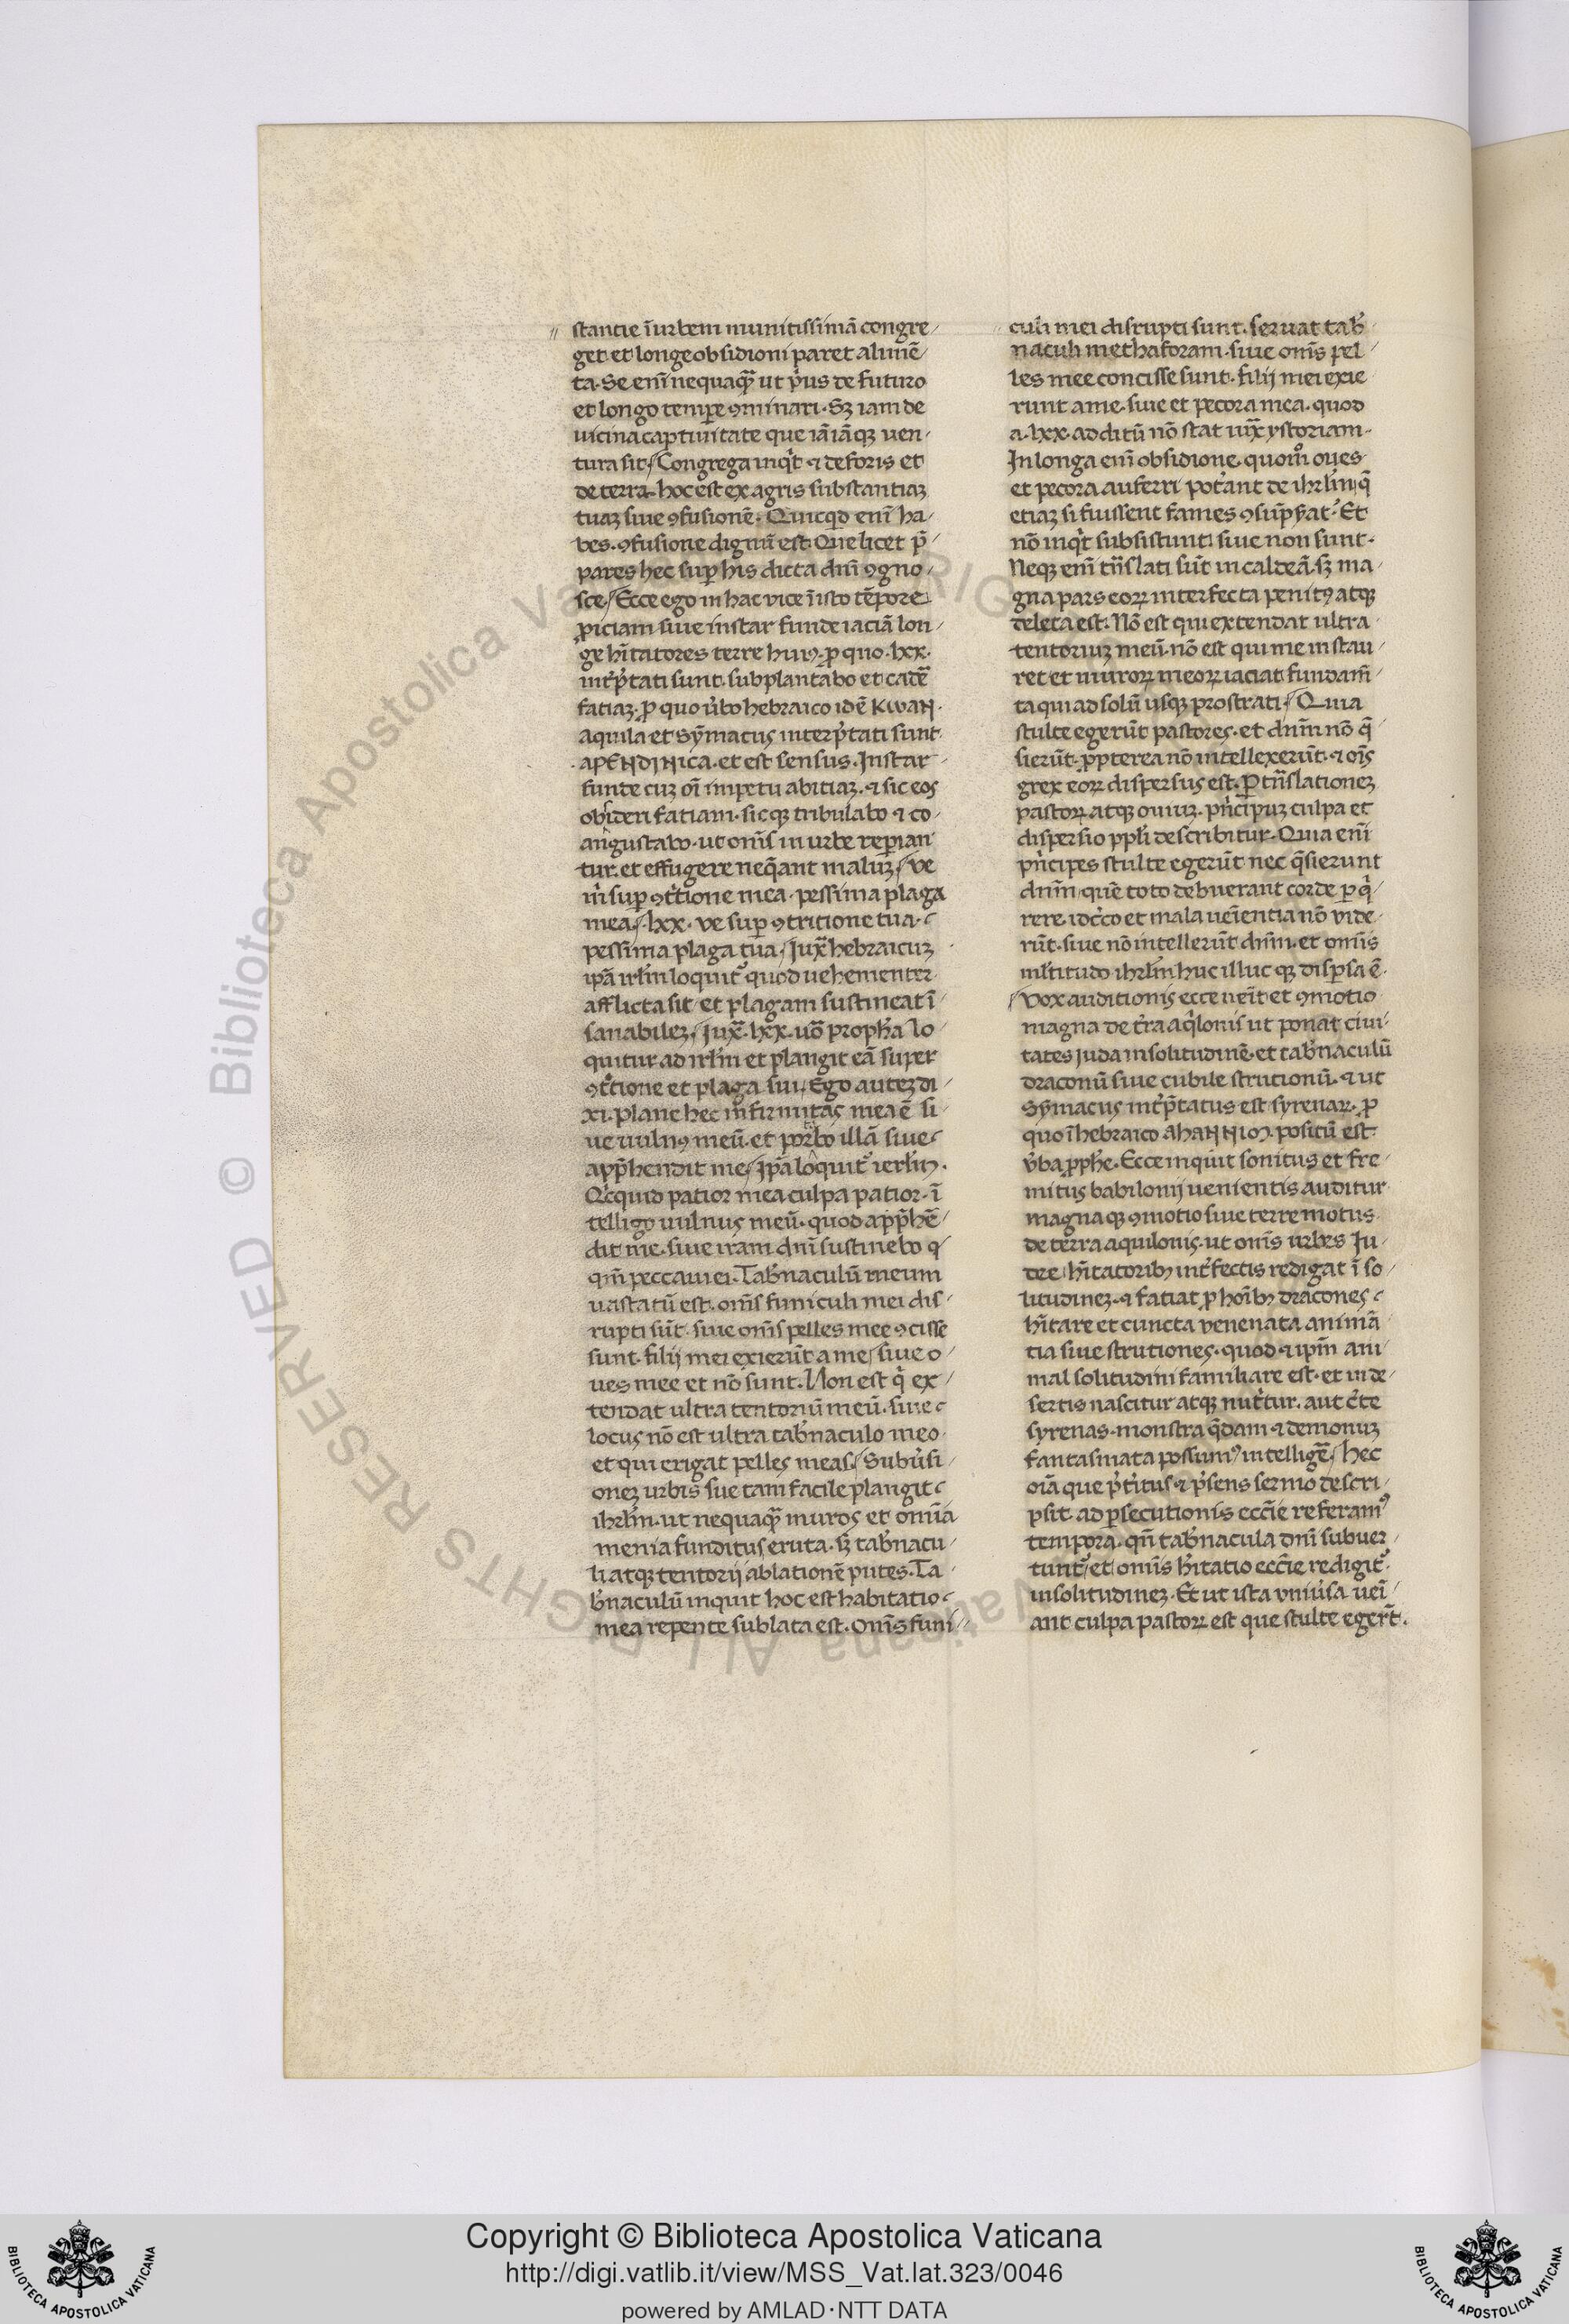 stantie ĩ urbem munitissimã congre
get et longe obsidioni paret alimẽ
ta. Se enĩ nequaq̃ ut p̃us de futuro
et longo temꝑe ꝯminari. Sꝫ iam de
uicina captiuitate que iã iãqꝫ uen
tura sit. Congrega inqͥt ⁊ de foris et
de terra. hoc est ex agris substantiaꝫ
tuaꝫ siue ꝯfusionẽ. Quicqͥd enĩ ha
bes. ꝯfusione dignũ est. Que licet p̃
pares hec suꝑ his dicta dñi ꝯgno
sce. Ecce ego in hac vice ĩ isto tẽpore
ꝓiciam siue instar funde iaciã lon
ge hĩtatores terre huiꝰ. ꝓ quo. lxx.
int̃p̃tati sunt. subplantabo et cadẽ
fatiaꝫ. ꝓ quo ũbo hebraico idẽ KWAN.
aquila et Sỹmacus interp̃tati sunt
apENdiNica. et est sensus. Instar
funde cuꝫ oĩ impetu abitiaꝫ. ⁊ sic eos
obsideri fatiam. sicqꝫ tribulabo ⁊ co
angustabo. ut om̃s in urbe reꝑian
tur. et effugere neq̃ant maluꝫ. ve
m̃ suꝑ ꝯt̃tione mea. pessima plaga
mea. lxx. ve suꝑ ꝯtritione tua.
pessima plaga tua. Juxͣ hebraicuꝫ
ip̃a irłm loquit᷑ quod uehementer
afflicta sit et plagam sustineat ĩ
sanabileꝫ. Juxͣ. lxx. uo᷑ propħa lo
quitur ad irłm et plangit eã super
ꝯt̃tione et plaga sui. Ego auteꝫ di
xi. plane hec infirmitas mea ẽ si
ue uulnꝰ meũ. et portabo illã siue
app̃hendit me. Ip̃a loquit᷑ ierłm.
Qͥcquid patior mea culpa patior. ĩ
telligo uulnus meũ. quod app̃hẽ
dit me. siue iram dñi sustinebo q
qm̃ peccaui ei. Tab̃naculũ meum
uastatũ est. om̃s funiculi mei dis
rupti sũt. siue om̃s pelles mee ꝯcisse
sunt. filij mei exierũt a me. siue o
ues mee et nõ sunt. Non est qͥ ex
tendat ultra tentoriũ meũ. siue
locus nõ est ultra tab̃naculo meo
et qui erigat pelles meas. Subũsi
oneꝫ urbis sue tam facile plangit
iħrłm. ut nequaq̃ muros et omĩa
menia funditus eruta. sꝫ tab̃nacu
li atqꝫ tentorij ablationẽ putes. Ta
b̃naculũ inquit hoc est habitatio
mea repente sublata est. Om̃s funi
culi mei disrupti sunt. seruat tab̃
naculi methaforam. siue om̃s pel
les mee concisse sunt. filij mei exie
runt a me. siue et pecora mea. quod
a. lxx. additũ nõ stat iuxͣ ystoriam.
In longa enĩ obsidione. quom̊ oues
et pecora auferri pot̃ant de iħrłm q̃
etiaꝫ si fuissent fames ꝯsũpserat. Et
nõ inqͥt subsistunt. siue non sunt.
Neqꝫ enĩ tñslati sũt in caldeã. sꝫ ma
gna pars eoꝝ interfecta penitꝰ atqꝫ
deleta est. Nõ est qui extendat ultra
tentoriuꝫ meũ. nõ est qui me instau
ret et muroꝝ meoꝝ iaciat fundam̃
ta qui ad solũ usqꝫ prostrati. Quia
stulte egerũt pastores. et dñm nõ q̃
sierũt. ꝓpterea nõ intellexerũt. ⁊ oĩs
grex eoꝝ dispersus est. Per tñslationeꝫ
pastoꝝ atqꝫ ouiuꝫ. pͥncipuꝫ culpa et
dispersio ppl̃i describitur. Quia enĩ
pͥncipes stulte egerũt nec q̃sierunt
dñm quẽ toto debuerant corde ꝑqͥ
rere. idc̃co et mala ueĩentia nõ vide
rũt. siue nõ intellerũt dñm. et om̃is
ml̃titudo iħrłm huc illucqꝫ disꝑsa ẽ.
Vox auditionis ecce ueĩt et ꝯmotio
magna de t̃ra aqͥlonis ut ponat ciui
tates iuda in solitudinẽ. et tab̃naculũ
draconũ siue cubile strutionũ. ⁊ ut
Sỹmacus int̃p̃tatus est syrenaꝝ. ꝓ
quo ĩ hebraico AhaNNim. positũ est
ũba ꝓphe. Ecce inquit sonitus et fre
mitus babilonij uenientis auditur
magnaqꝫ ꝯmotio siue terremotus.
de terra aquilonis. ut om̃s urbes Ju
dee hĩtatoribꝫ int̃fectis redigat ĩ so
litudineꝫ. ⁊ fatiat ꝓ hoĩbꝫ dracones
hĩtare et cuncta venenata animã
tia siue strutiones. quod ⁊ ip̃m ani
mal solitudini familiare est. et in de
sertis nascitur atqꝫ nut̃tur. aut c̃te
syrenas. monstra q̃dam ⁊ demonuꝫ
fantasmata possumꝰ intelligẽ. hec
oĩa que p̃t̃itus ⁊ p̃sens sermo descri
psit. ad ꝑsecutionis eccl̃ie referamꝰ
tempora. qñ tab̃nacula dñi subuer
tunt᷑ et om̃is hĩtatio eccl̃ie redigit᷑
in solitudineꝫ. Et ut ista uniũsa uei
ant culpa pastoꝝ est que stulte eger̃t.
Copyright © Biblioteca Apostolica Vaticana
http://digi.vatlib.it/view/MSS_Vat.lat.323/0046
powered by AMLAD·NTT DATA
BIBLIOTECA APOSTOLICA VATICANA
BIBLIOTECA APOSTOLICA VATICANA